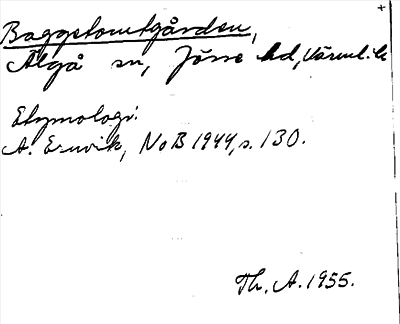 Baggetomtgården,
Älgå sn, Jösse hd, Värml. l.
Etymologi:
A. Ernvik, NoB 1944, s. 130.
Th. A. 1955.